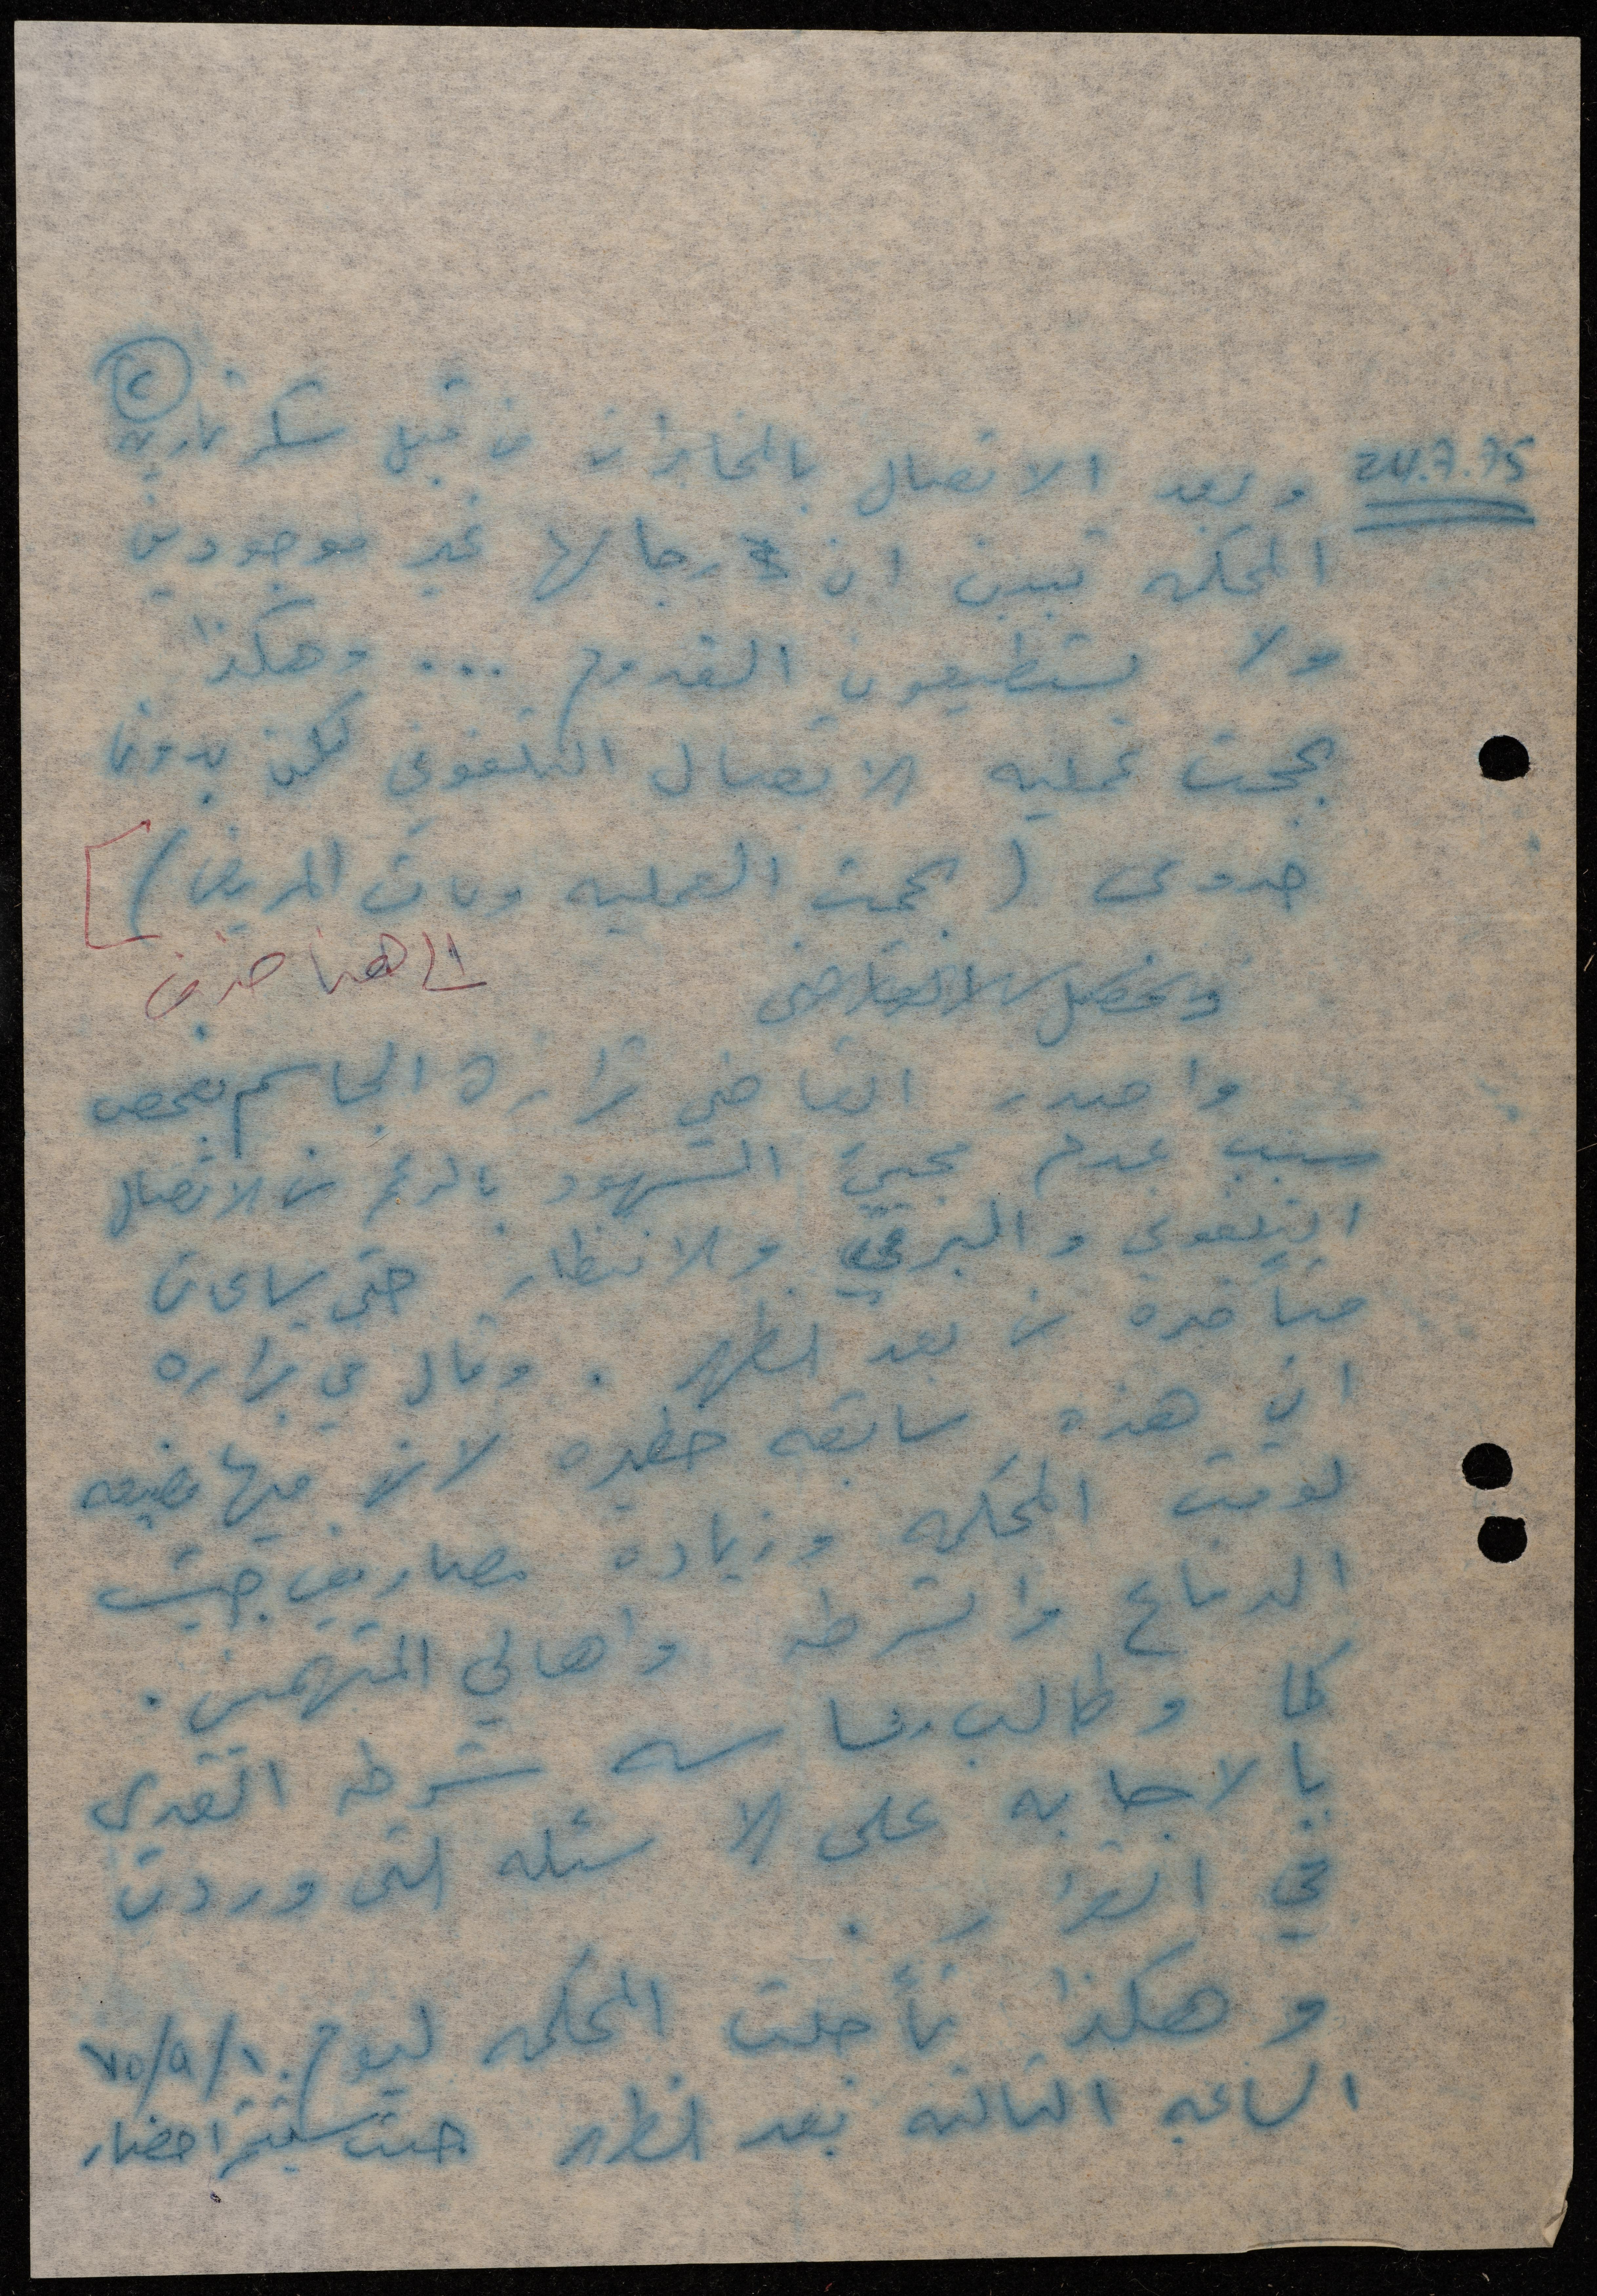 ٢
24.7.75
وبعد الاتصال بالمخابرات من قبل سكرتارية
المحكمه تبين ان رجالها غير موجودين
ولا يستطيعون القدوم ... وهكذا
نجحت عمليه الاتصال التلفوني لكن بدون
جدوى (نجحت العمليه ومات المريض)
الى هنا حذف
واصدر القاضي قراره الحاسم بفحص
سبب عدم مجيئ الشهود بالرغم من الاتصال
التلفوني والبرقي والانتظار حتى ساعات
متأخره من بعد الظهر . وقال في قراره
ان هذه سابقه خطيره لان فيها مضيعه
لوقت المحكمه وزياده مصاريف
الدفاع والشرطه واهالي المتهمين .
كما وطالب شرطه القدس
بالاجابه على الاسئله التي وردت
في القرار .
وهكذا تأجلت المحكمه ليوم ١٠/٩/٧٥
الساعه الثالثه بعد الظهر حيث سيتم احضار